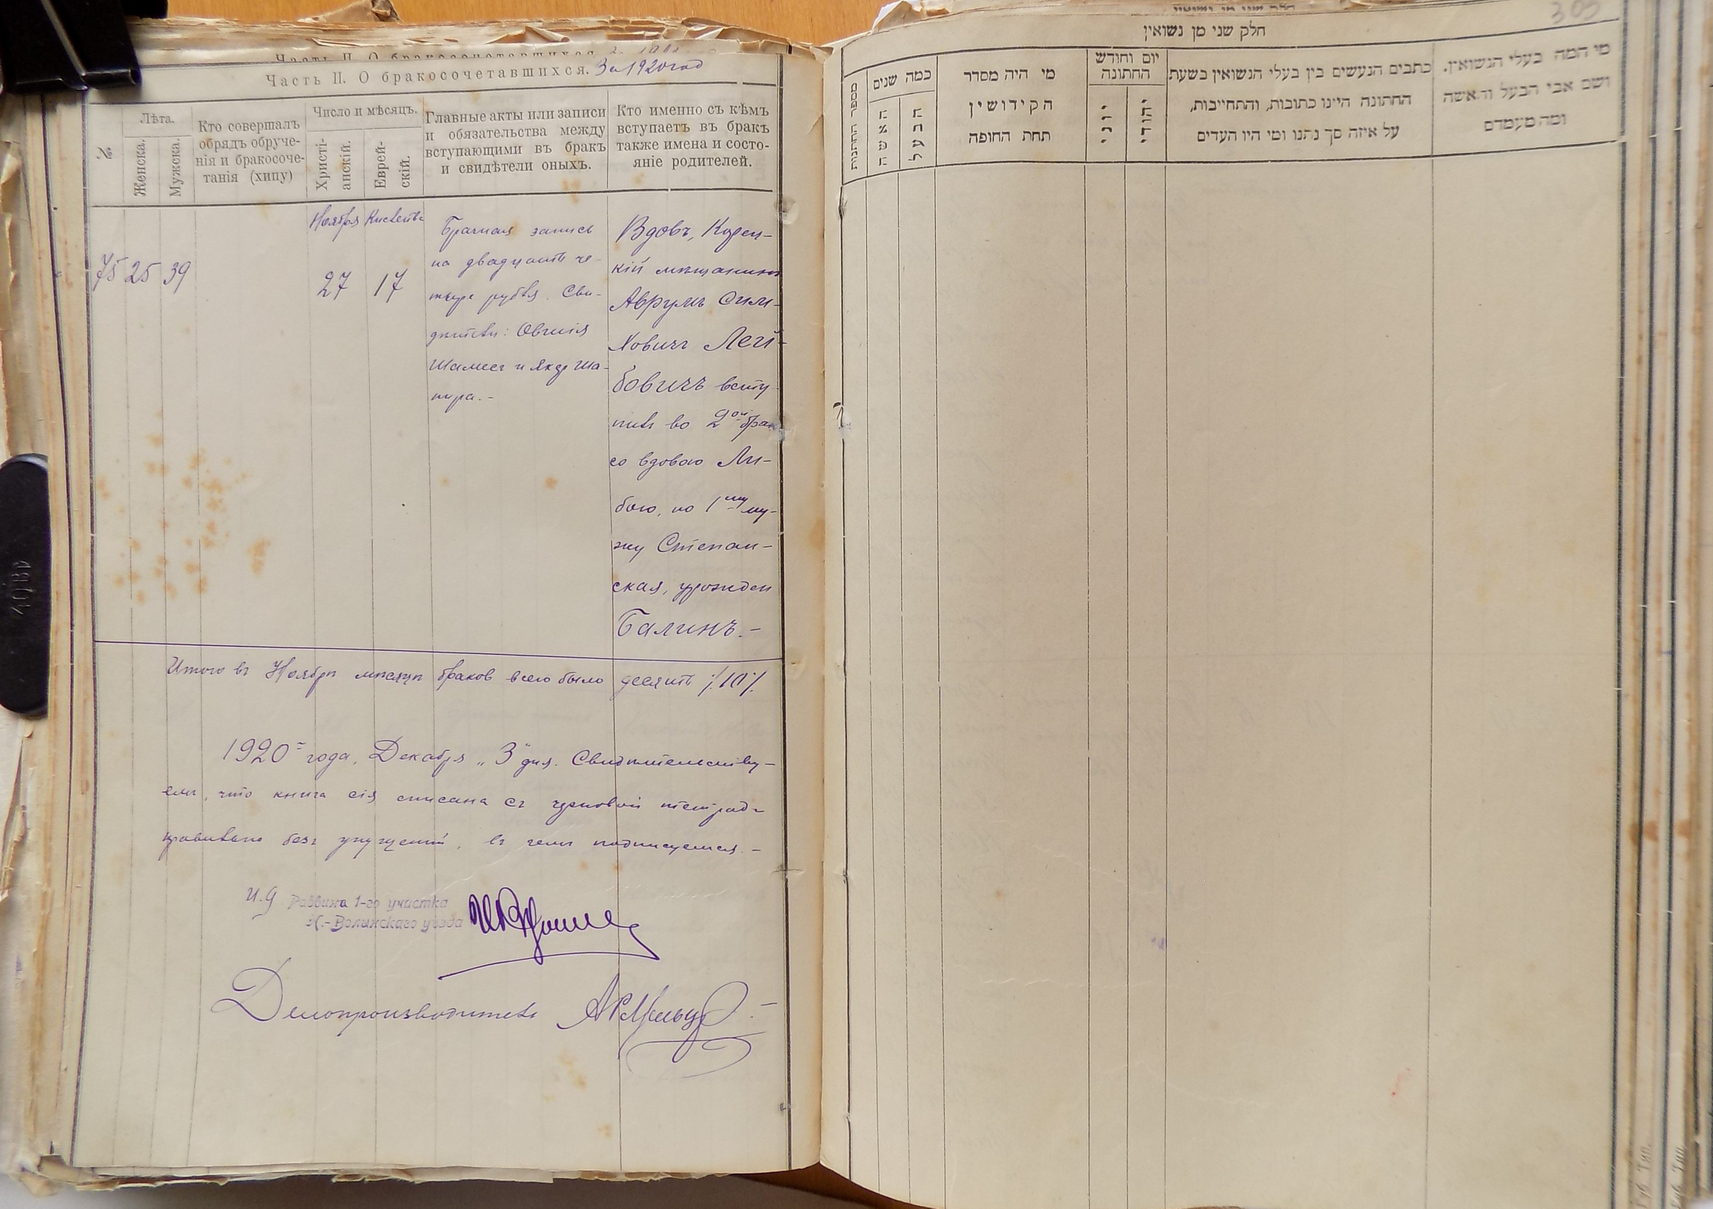 Часть II. О бракосочетавшихся. За 1920 год
№
Лѣта.
Женска.
Мужска.
Кто совершалъ
обрядъ обруче-
нія и бракосоче-
танія (хипу)
Число и мѣсяцъ.
Христі-
анскій.
Еврей-
скій.
Главные акты или записи
и обязательства между
вступающими въ бракъ
и свидѣтели оныхъ.
Кто именно съ кѣмъ
вступаетъ въ бракъ
также имена и состо-
яніе родителей.
75 25 39
Ноября
27
Кислева
17
Брачная запись
на двадцать че-
тыре рубля. Сви-
дѣтели: Овшія
Шамес и Якер Ша-
пира.-
Вдовъ, Корец-
кій мѣщанинъ
Аврумъ Сим-
ховичъ Лей-
бовичъ всту-
пилъ во 2ой бракъ
со вдовою Ли-
бою, по 1му му-
жу Степан-
ская, урожден
Балинъ.-
Итого въ Ноябрѣ мѣсяцѣ браков всего было десять ٪10٪
1920 года, Декабря „3" дня. Свидѣтельству-
ем, что книга сія списана съ черновой тетради
правильно безъ упущеній, въ чемъ подписуемся.-
И.д Раввина 1-го участка
Н.-Волынскаго уѣзда
Делопроизводитель
חלק שני מן נשואין
305
מספר החתונות
כמה שנים
האשה
הבעל
מי היה מסדר
הקידושין
תחת החופה
יום וחודש
החתונה
יוני
יהודי
כתבים הנעשים בין בעלי הנשואין בשעת
החתונה היינו כתובות, והתחייבות,
על איזה סך נתנו ומי היו העדים
מי המה בעלי הנשואין.
ושם אבי הבעל והאשה
ומה מעמדם